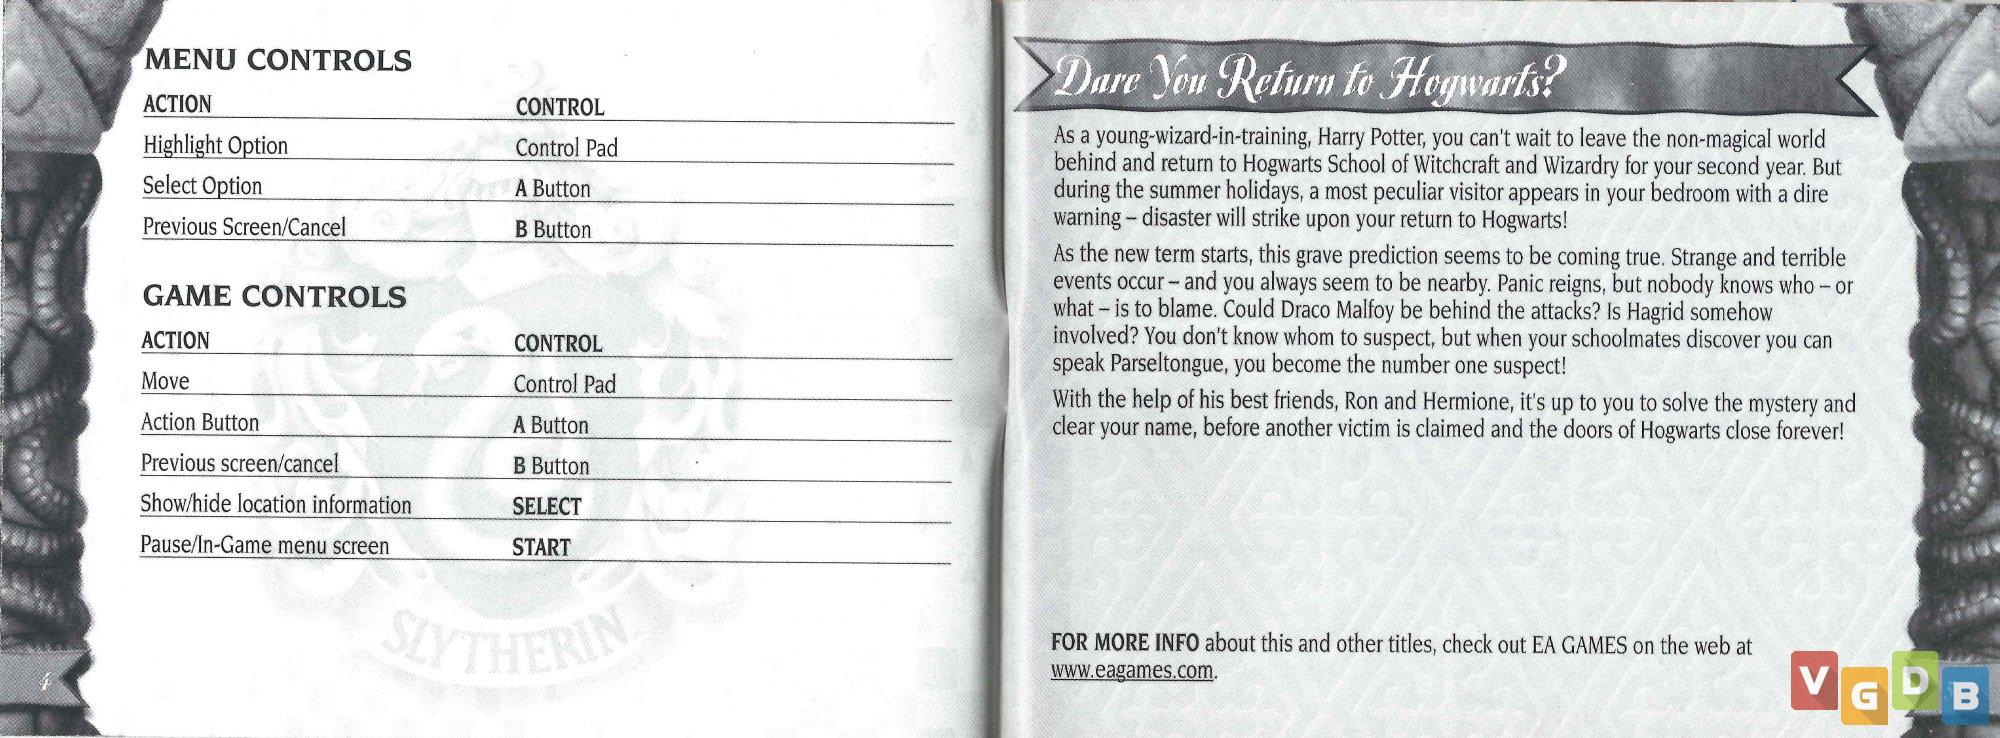 MENU CONTROLS
ACTION CONTROL
Highlight Option Control Pad
Select Option A Button
Previous Screen/Cancel B Button
GAME CONTROLS
ACTION CONTROL
Move Control Pad
Action Button A Button
Previous screen/cancel B Button
Show/hide location information SELECT
Pause/In-Game menu screen START
SLYTHERIN
4
Dare You Return to Hogwarts?
As a young-wizard-in-training, Harry Potter, you can't wait to leave the non-magical world
behind and return to Hogwarts School of Witchcraft and Wizardry for your second year. But
during the summer holidays, a most peculiar visitor appears in your bedroom with a dire
warning – disaster will strike upon your return to Hogwarts!
As the new term starts, this grave prediction seems to be coming true. Strange and terrible
events occur – and you always seem to be nearby. Panic reigns, but nobody knows who – or
what – is to blame. Could Draco Malfoy be behind the attacks? Is Hagrid somehow
involved? You don't know whom to suspect, but when your schoolmates discover you can
speak Parseltongue, you become the number one suspect!
With the help of his best friends, Ron and Hermione, it's up to you to solve the mystery and
clear your name, before another victim is claimed and the doors of Hogwarts close forever!
FOR MORE INFO about this and other titles, check out EA GAMES on the web at
www.eagames.com.
VGDB